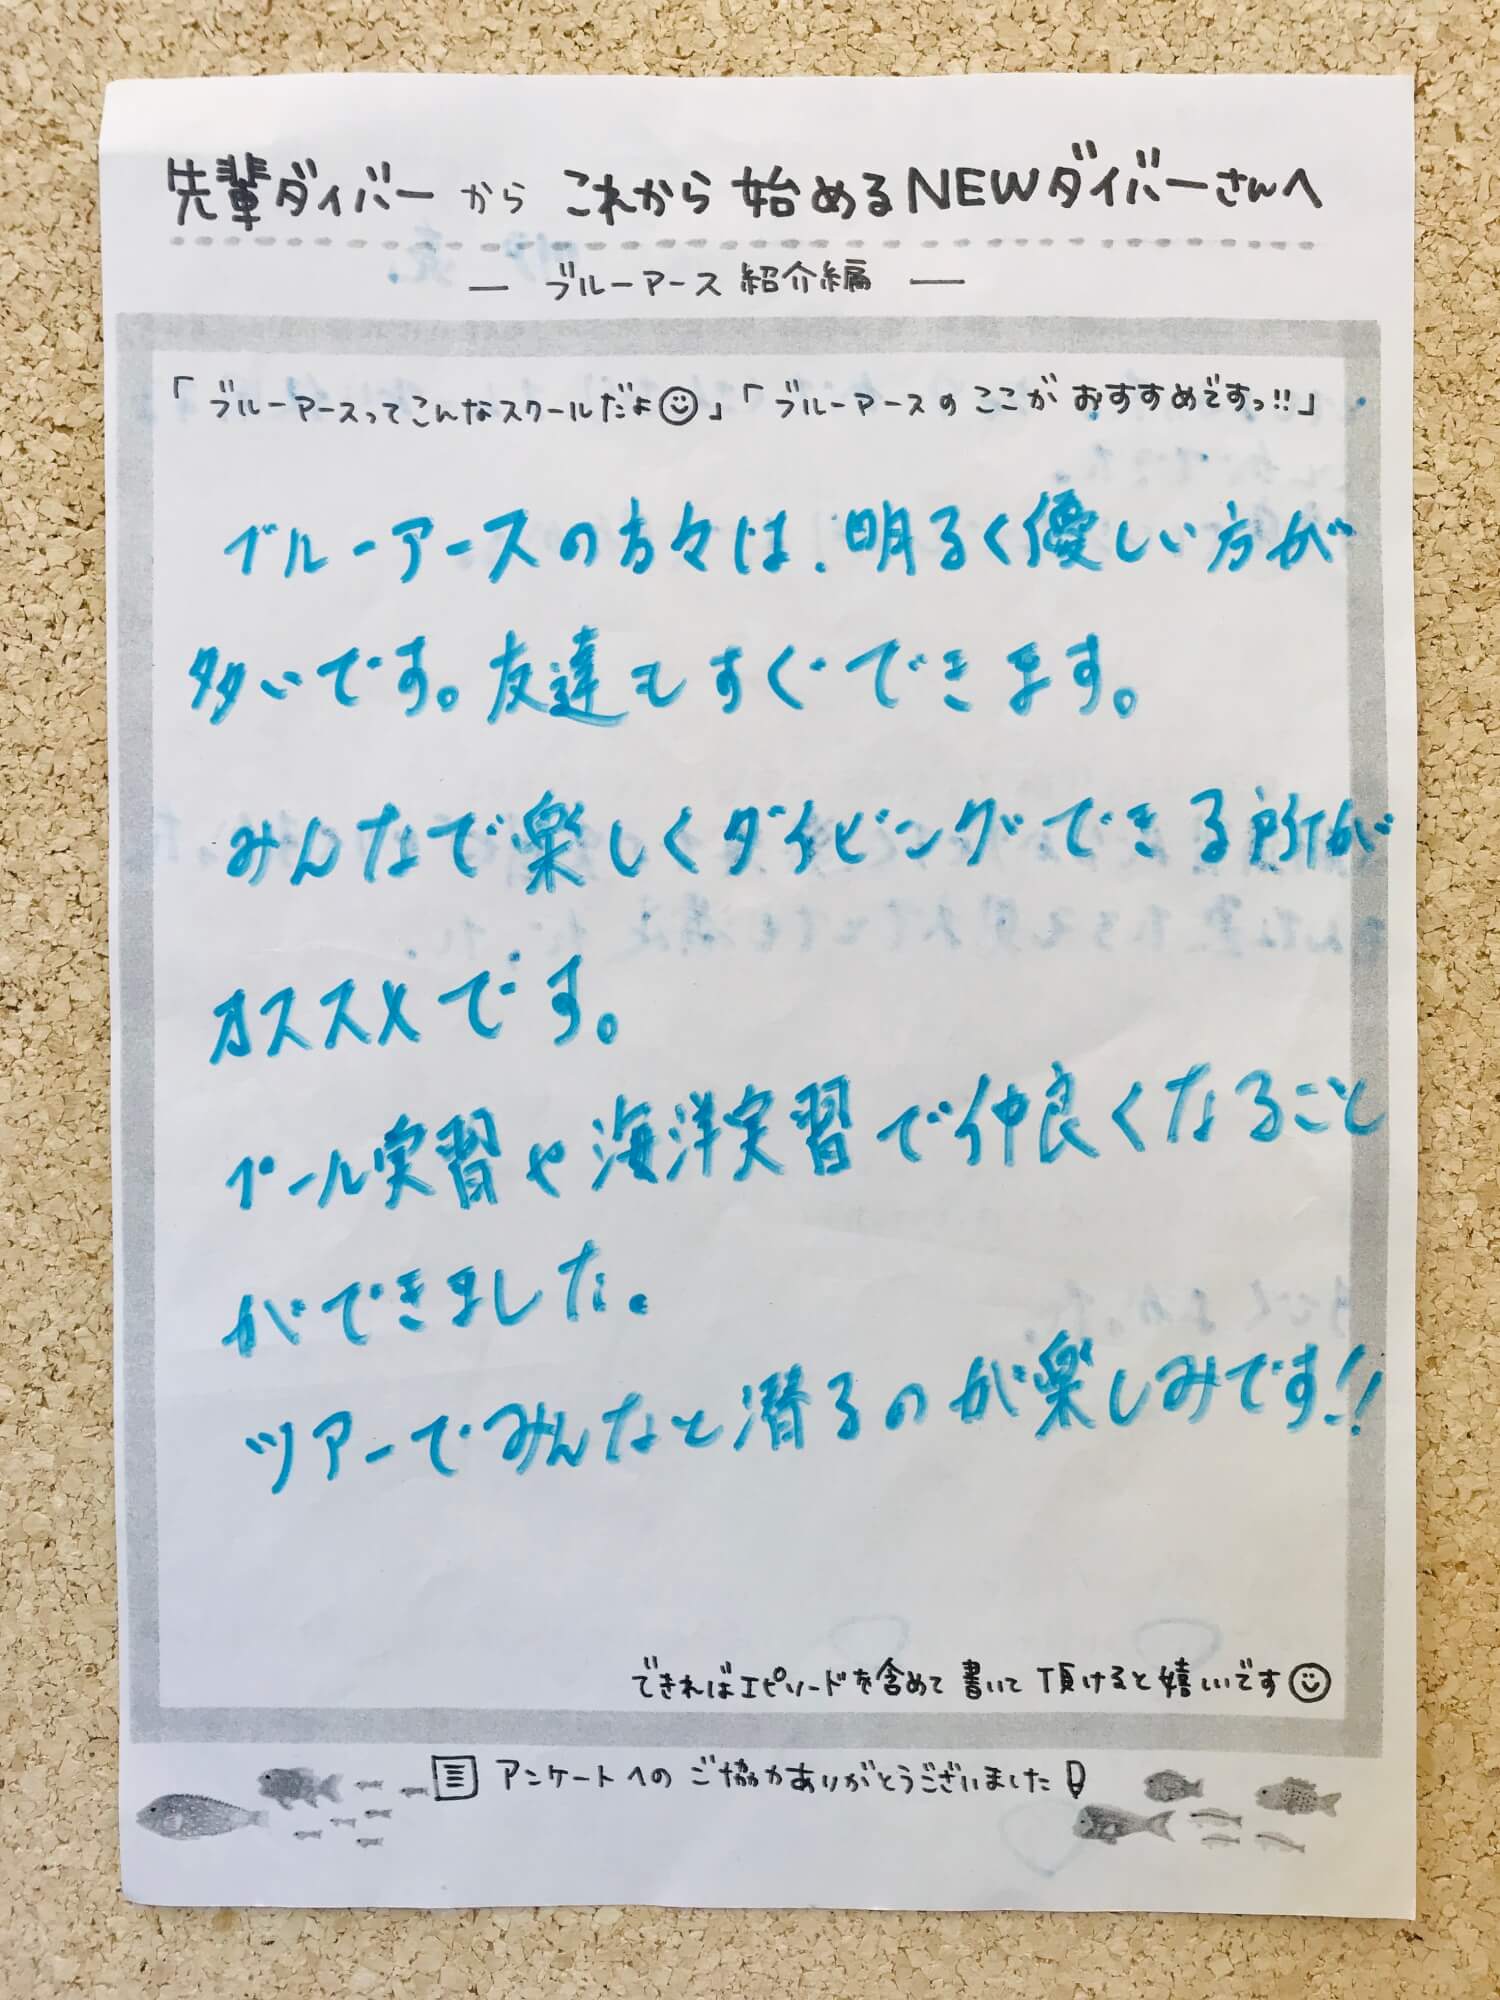 先輩ダイバーから これから 始めるNEWダイバーさんへ
ー ブルーアース 紹介編 ー
「ブルーアースってこんなスクールだよ☺」「ブルーアースのここがおすすめですっ!!」
ブルーアースの方々は、明るく優しい方が
多いです。友達もすぐできます。
みんなで楽しくダイビングできる所が
オススメです。
プール実習や海洋実習で仲良くなること
ができました。
ツアーでみんなと潜るのが楽しみです!!
できればエピソードを含めて書いて頂けると嬉しいです☺
アンケートへのご協力ありがとうございました